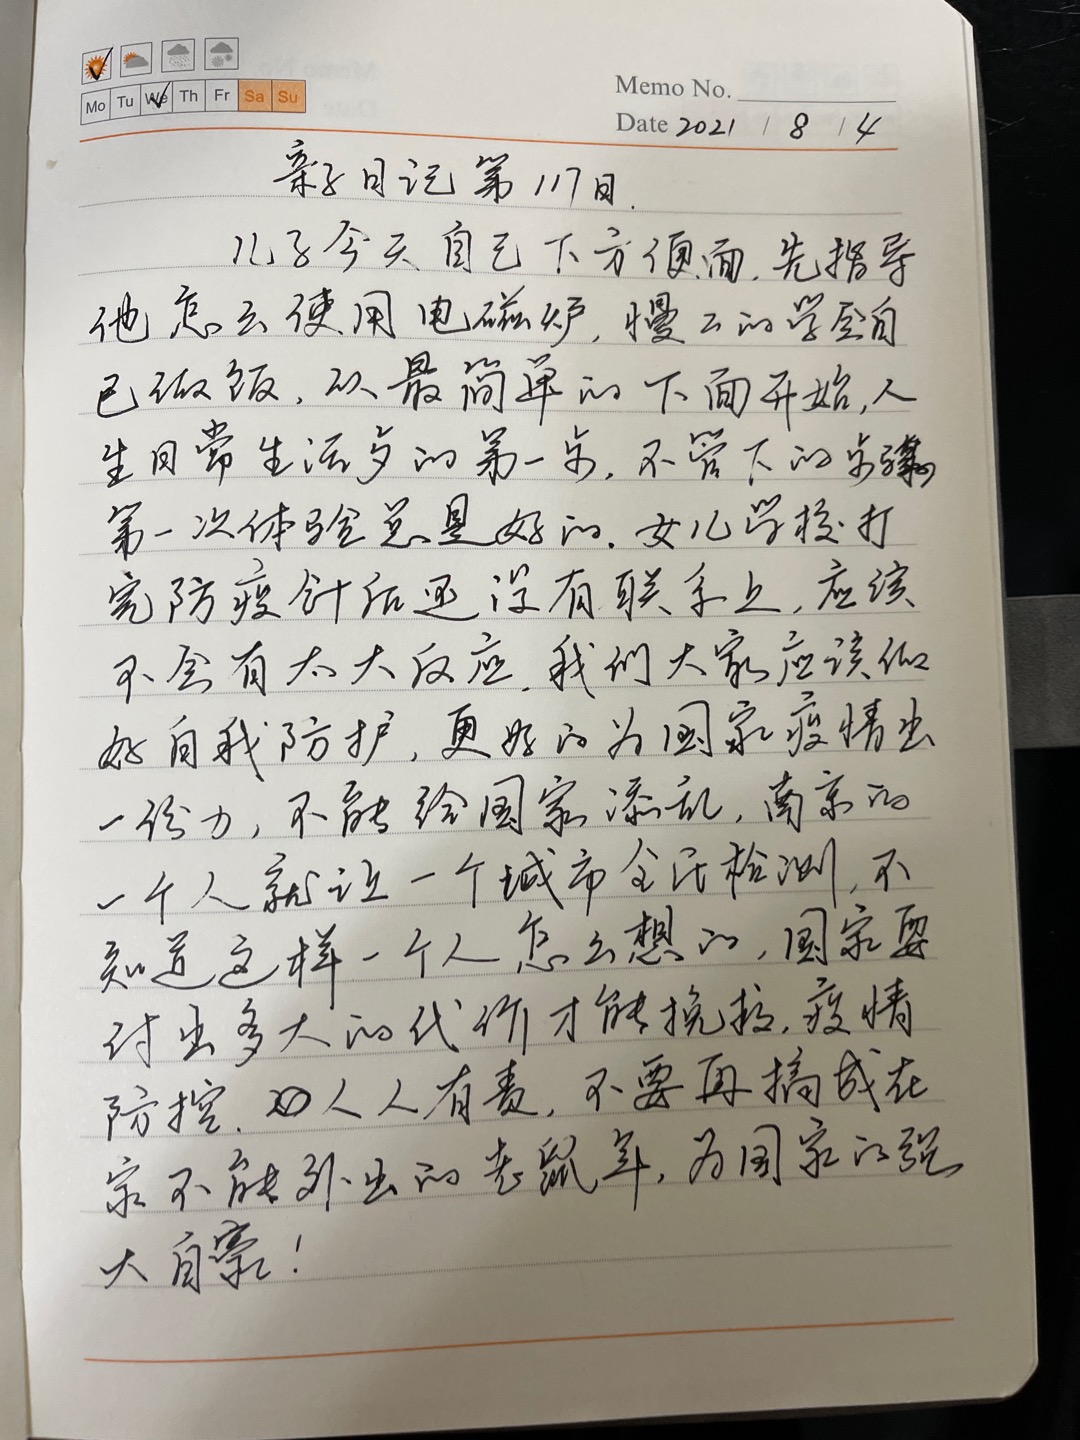 Mo Tu We Th Fr Sa Su
Memo No.
Date 2021 / 8 / 4
亲子日记第117日.
儿子今天自己下方便面,先指导
他怎么使用电磁炉,慢々的学会自
己做饭,从最简单的下面开始,人
生日常生活多的第一步,不管下的步骤
第一次体验总是好的.女儿学校打
完防疫针后还没有联系上,应该
不会有太大反应.我们大家应该做
好自我防护,更好的为国家疫情出
一份力,不能给国家添乱,南京的
一个人就让一个城市全民检测,不
知道这样一个人怎么想的,国家要
付出多大的代价才能挽救.疫情
防控.人人有责,不要再搞成在
家不能外出的老鼠年,为国家的强
大自豪!